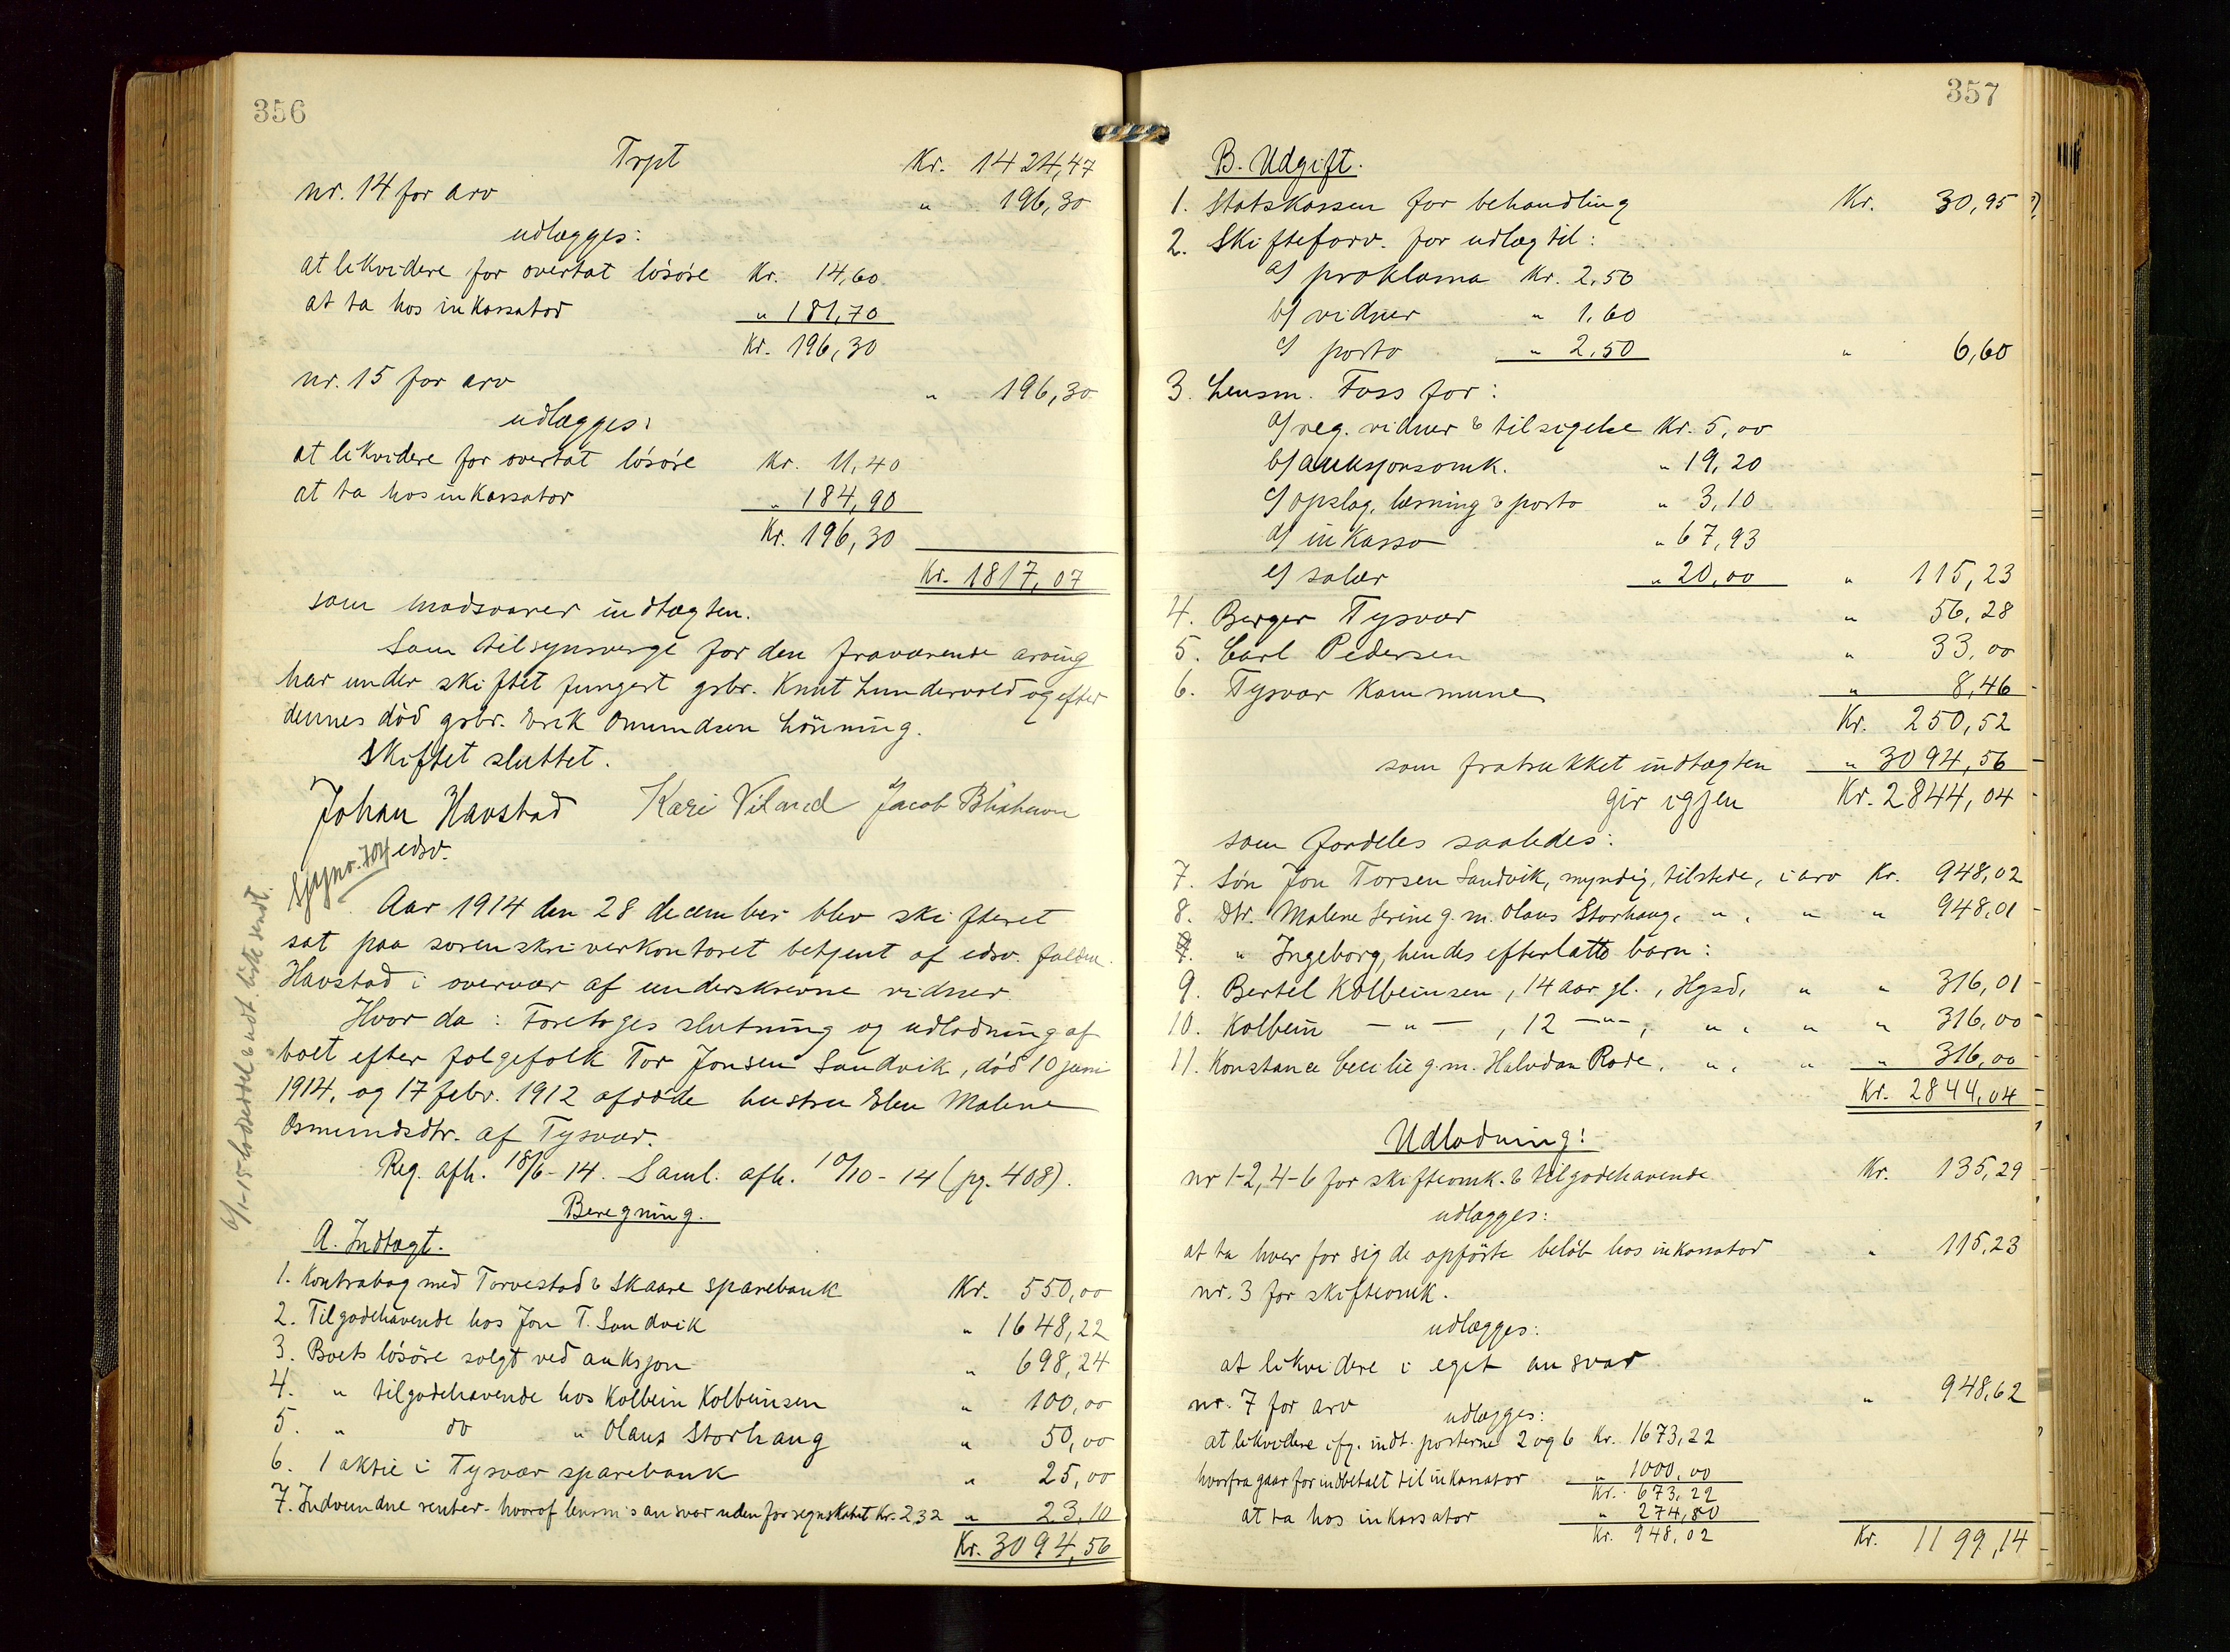 356
Trpt Kr. 1424,47
nr. 14 for arv " 196,30
udlægges:
at likvidere for overtat lösöre Kr. 14,60
at ta hos inkassator " 181,70
Kr. 196,30
nr. 15 for arv " 196,30
udlægges:
at likvidere for overtat lösöre Kr. 11,40
at ta hos inkassator " 184,90
Kr. 196,30
Kr. 1817,07
som modsvarer indtægten.
Som tilsynsverge for den fraværende arving
har under skiftet fungert gsbr. Knut Lundervold og efter
dennes död gsbr. Erik Omundsen Lönning.
Skiftet sluttet.
Johan Havstad Kari Viland Jacob
edsv.
Aar 1914 den 28 december blev skifteret
sat paa sorenskriverkontoret betjent af edsv. fuldm.
Havstad i overvær af underskrevne vidner.
Hvor da: Foretoges slutning og udlodning af
boet efter folgefolk Tor Jonsen Sandvik, död 10 juni
1914, og 17 febr. 1912 afdöde hustru Elen Malene
Osmundsdtr. af Tysvær.
Reg. afh. 18/6-14. Saml. afh. 10/10-14 (pg. 408).
Beregning.
A. Indtægt.
1. Kontrabog med Torvestad & Skaare sparebank Kr. 550,00
2. Tilgodehavende hos Jon T. Sandvik " 1648,22
3. Boets lösöre solgt ved auksjon " 698,24
4. " tilgodehavende hos Kolbein Kolbeinsen " 100,00
5. " do " Olaus Storhaug " 50,00
6. 1 aktie i Tysvær sparebank " 25,00
7. Indvundne renter - hvoraf lensm's ansvar udenfor regnskabet Kr. 2,32 " 23,10
Kr. 3094,56
357
B. Udgift.
1. Statskassen for behandling Kr. 30,95
2. Skifteforv. for udlæg til:
a/ proklama Kr. 2,50
b/ vidner " 1,60
c/ porto " 2,50 " 6,60
3. Lensm. Foss for:
a/ reg. vidner & tilsigelse Kr. 5,00
b/ auksjonsomk. " 19,20
c/ opslag, læsning & porto " 3,10
d/ inkasso " 67,93
e/ salær " 20,00 " 115,23
4. Berger Tysvær " 56,28
5. Carl Pedersen " 33,00
6. Tysvær Kommune " 8,46
Kr. 250,52
som fratrukket indtægten " 3094,56
gir igjen Kr. 2844,04
som fordeles saaledes:
7. Sön Jon Torsen Sandvik, myndig, tilstede, i arv Kr. 948,02
8. Dtr. Malene Serine g. m. Olaus Storhaug, " , " " 948,01
" Ingeborg, hendes efterlatte barn:
9. Bertel Kolbeinsen, 14 aar gl., Hgsd, " " 316,01
10. Kolbein — " —, 12 — " —, " , " " 316,00
11. Konstance Cecilie g. m. Halvdan Rode, " , " " 316,00
Kr. 2844,04
Udlodning:
nr 1-2, 4-6 for skifteomk. & tilgodehavende Kr. 135,29
udlægges:
at ta hver for sig de opförte belöb hos inkassator " 115,23
nr. 3 for skifteomk.
udlægges:
at likvidere i eget ansvar
nr. 7 for arv " 948,62
udlægges:
at likvidere ifg. indt. posterne 2 og 6 Kr. 1673,22
hvorfra gaar for indbetalt til inkassator " 1000,00
Kr. 673,22
at ta hos inkassator " 274,80
Kr. 948,02 Kr. 1199,14